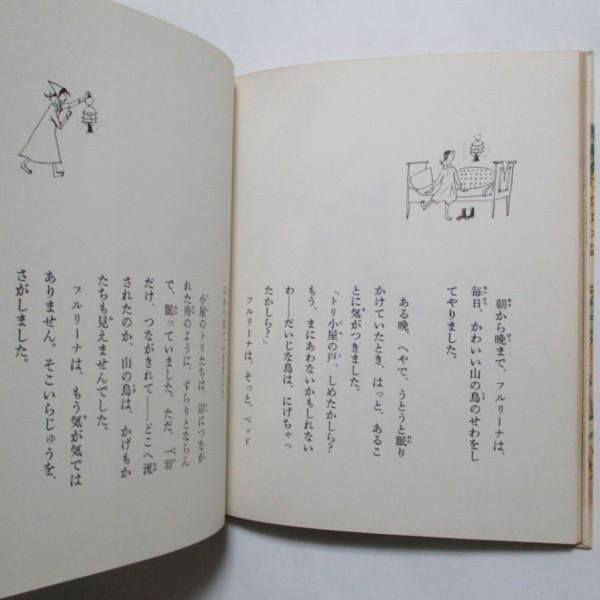 朝から晩まで、フルリーナは、
毎日、かわいい山の鳥のせわをし
てやりました。
ある晩、へやで、うとうと眠り
かけていたとき、はっと、あるこ
とに気がつきました。
「トリ小屋の戸、しめたかしら?
もう、まにあわないかもしれない
わ——だいじな鳥は、にげちゃっ
たかしら?」
フルリーナは、そっと、ベッド
小屋のトリたちは、岸につなが
れた舟のように、ずらりとならん
で、眠っていました。ただ、一羽
だけ、つながきれて——どこへ流
されたのか、山の鳥は、かげもか
たちも見えませんでした。
フルリーナは、もう気が気では
ありません。そこいらじゅうを、
さがしました。